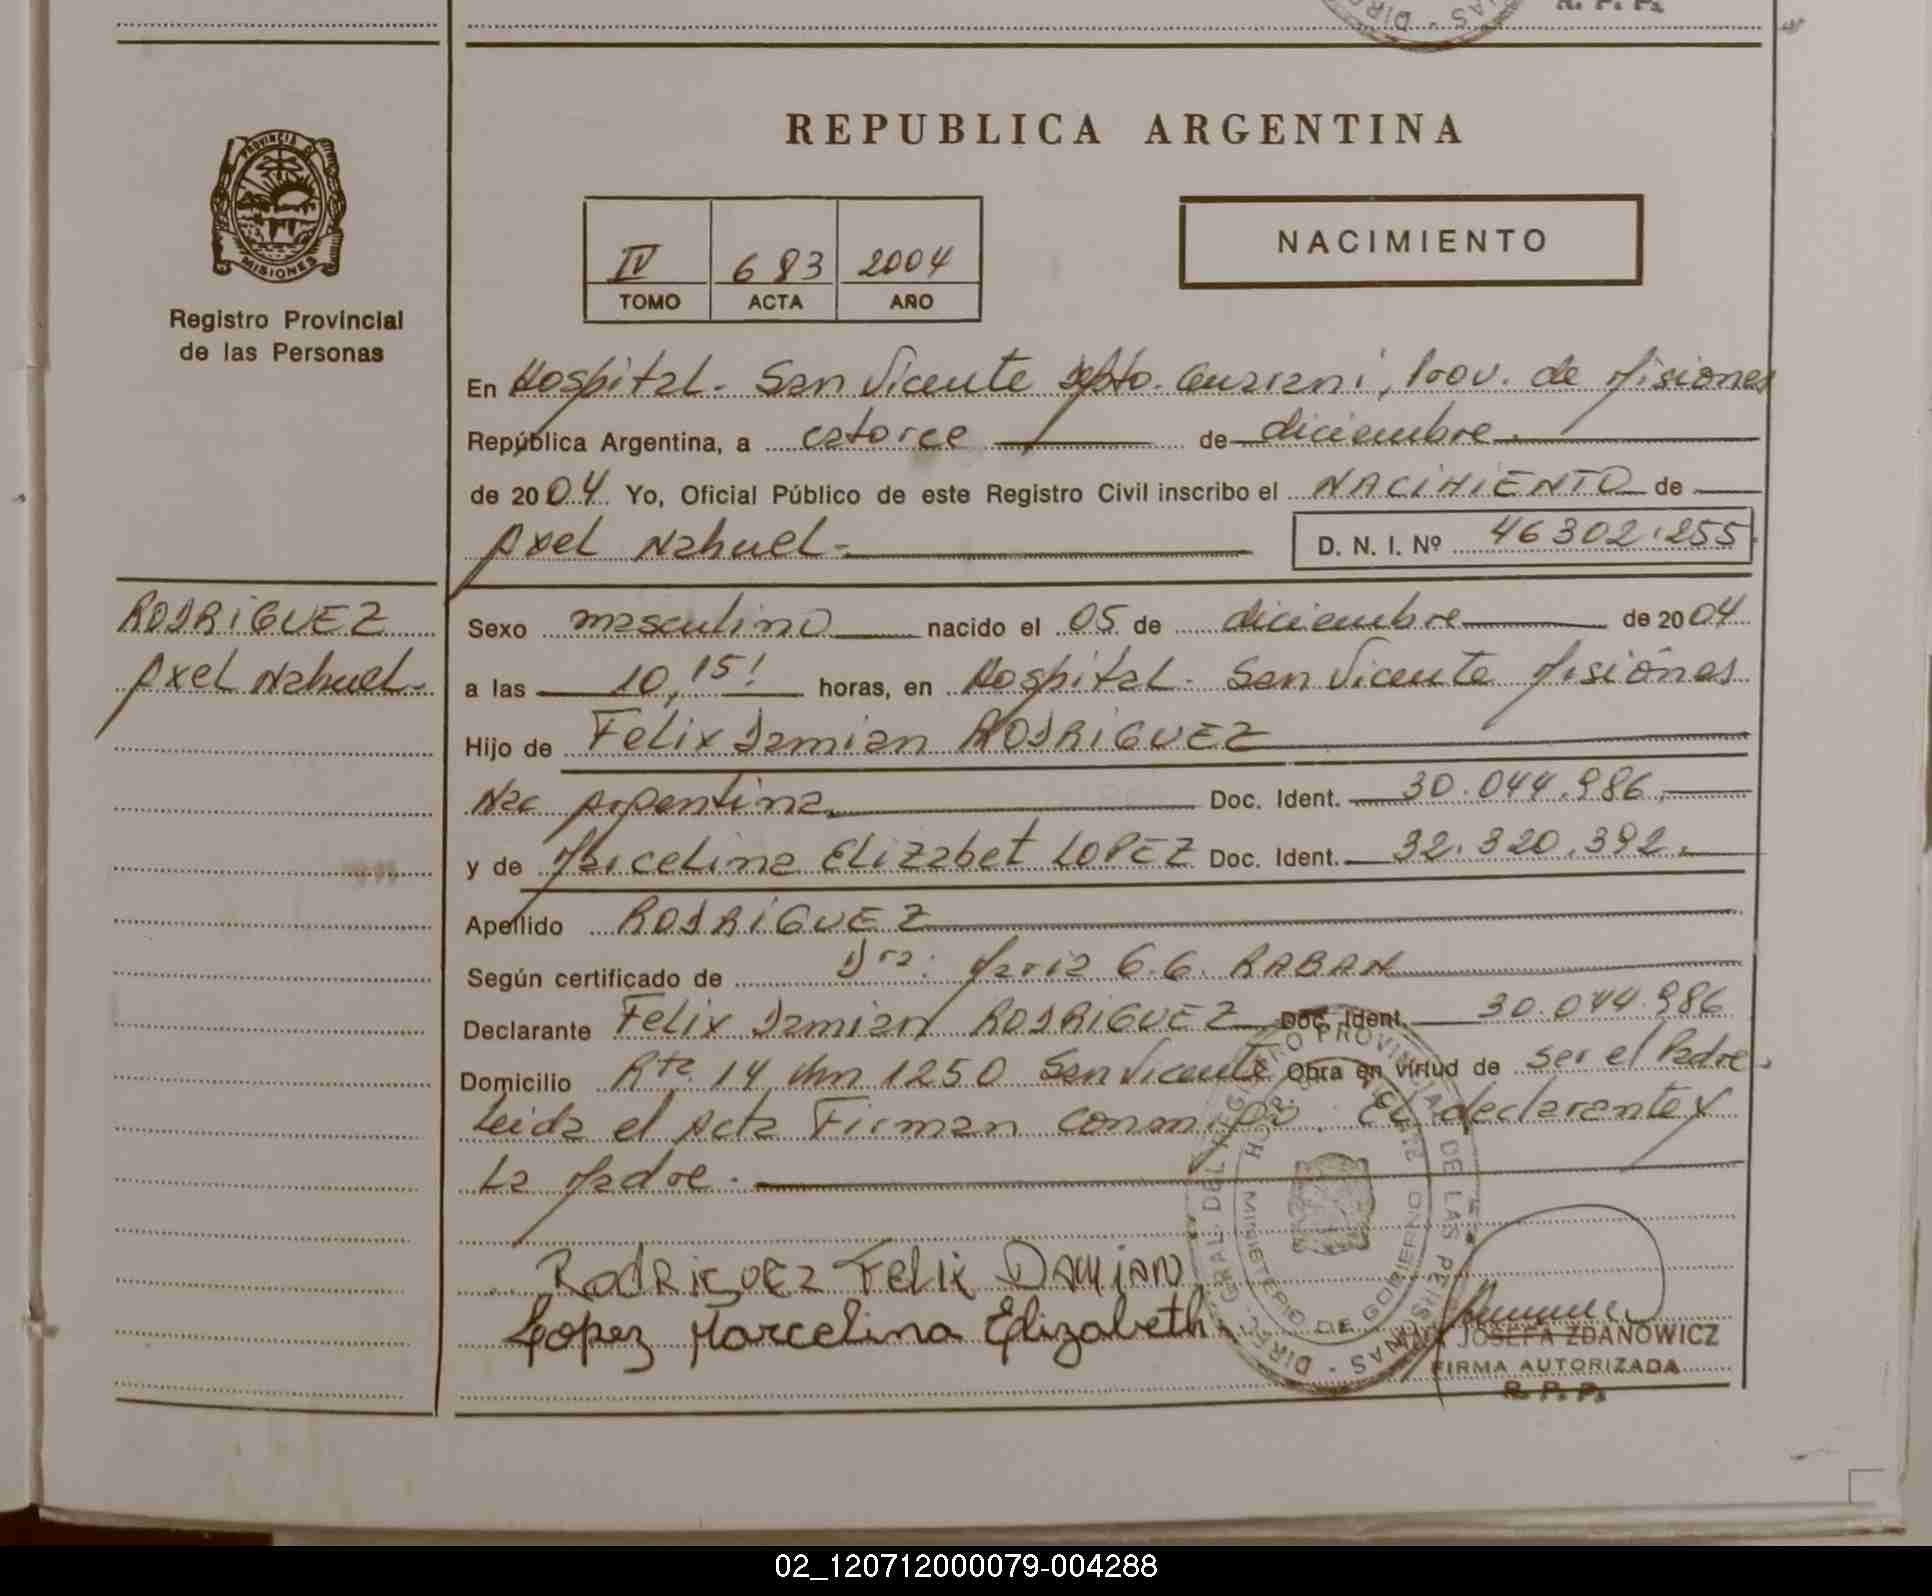 R. P. P.
REPUBLICA ARGENTINA
PROVINCIA DE
MISIONES
Registro Provincial
de las Personas
IV 683 2004
TOMO ACTA AÑO
NACIMIENTO
En Hospital - San Vicente Dpto. Guarani, Prov. de Misiones
República Argentina, a catorce de diciembre.
de 2004 Yo, Oficial Público de este Registro Civil inscribo el NACIMIENTO de
Axel Nahuel -
D. N. I. Nº 46302.255
RODRIGUEZ
Axel Nahuel -
Sexo masculino nacido el 05 de diciembre de 2004
a las 10,15! horas, en Hospital - San Vicente Misiones
Hijo de Felix Damian RODRIGUEZ
Nac Argentina Doc. Ident. 30.044.986.
y de Marcelina Elizabet LOPEZ Doc. Ident. 32.320.392.
Apellido RODRIGUEZ
Según certificado de Dra. Maria G.G. RABAN
Declarante Felix Damian RODRIGUEZ Doc. Ident. 30.044.986
Domicilio Rta. 14 Km 1250 San Vicente Obra en virtud de ser el Padre.
Leida el Acta Firman conmigo. El declarante y
La Madre.
RODRIGUEZ FELIX DAMIAN
Lopez Marcelina Elizabeth
DIREC. GRAL. DEL REGISTRO PROVINCIAL DE LAS PERSONAS -
MINISTERIO DE GOBIERNO
JOSEFA ZDANOWICZ
FIRMA AUTORIZADA
R. P. P.
02_120712000079-004288